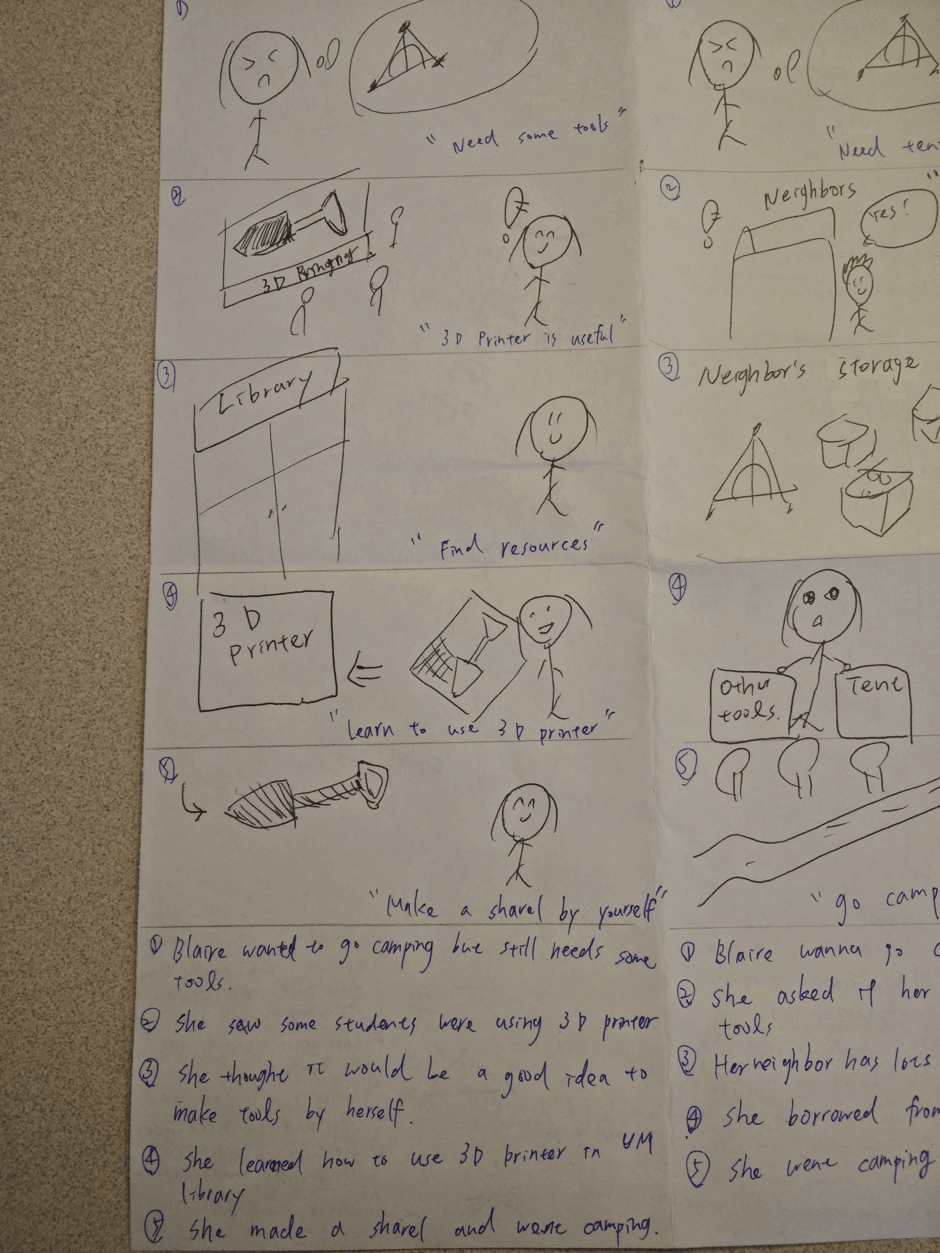 "Need some tools"
②
3D
"3D Printer is useful"
③
Library
"Find resources"
④
3D
Printer
"Learn to use 3D printer"
⑤
"Make a sharel by yourself"
① Blaire wanted to go camping but still needs some
tools.
② She saw some students were using 3D printer
③ She thought it would be a good idea to
make tools by herself.
④ She learned how to use 3D printer in UM
library
⑤ She made a sharel and went camping.
"Need ten
②
Neighbors
Yes!
③ Neighbor's storage
④
Other
tools.
Tent
⑤
"go camp
① Blaire wanna go c
② She asked if her
tools
③ Her neighbor has lots
④ She borrowed from
⑤ She went camping